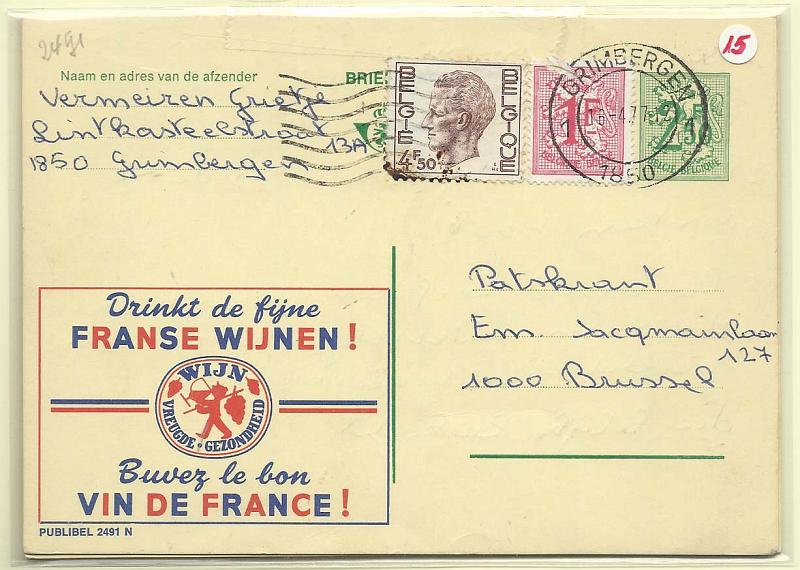 2491
15
Naam en adres van de afzender
BRIE
Vermeiren Grietje
Lintkasteelstraat
13A
1850 Grimbergen
BELGIE BELGIQUE
4F50
1F
GRIMBERGEN
1850
2F50
BELGIE-BELGIQUE
Patskrant
Em. Jacqmainlaan
127
1000 Brussel
Drinkt de fijne
FRANSE WIJNEN!
WIJN
VREUGDE · GEZONDHEID
Buvez le bon
VIN DE FRANCE!
PUBLIBEL 2491 N